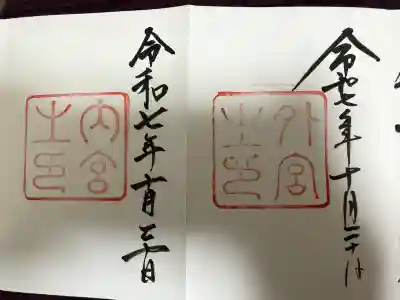 令和七年十月二十日
外宮
之印
令和七年十月二十日
内宮
之印